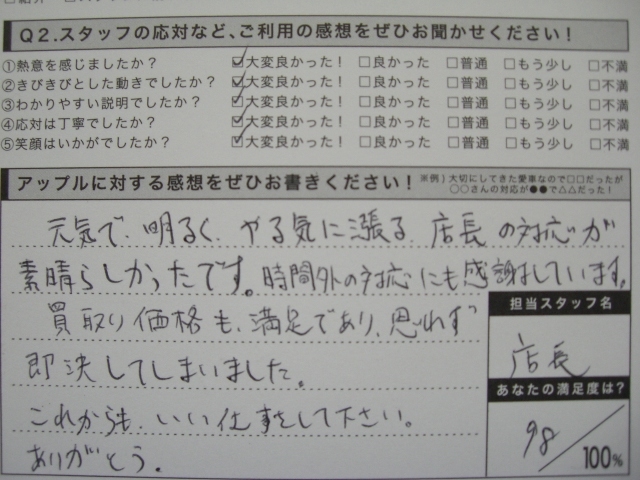 Q2.スタッフの応対など、ご利用の感想をぜひお聞かせください！
①熱意を感じましたか？ ☑大変良かった！ □良かった □普通 □もう少し □不満
②きびきびとした動きでしたか？ ☑大変良かった！ □良かった □普通 □もう少し □不満
③わかりやすい説明でしたか？ ☑大変良かった！ □良かった □普通 □もう少し □不満
④応対は丁寧でしたか？ ☑大変良かった！ □良かった □普通 □もう少し □不満
⑤笑顔はいかがでしたか？ ☑大変良かった！ □良かった □普通 □もう少し □不満
アップルに対する感想をぜひお書きください！ ※例）大切にしてきた愛車なので□□だったが
○○さんの対応が●●で△△だった！
元気で、明るく、やる気に漲る、店長の対応が
素晴らしかったです。時間外の対応にも感謝しています。
買取り価格も、満足であり、思わず
即決してしまいました。
これからも、いい仕事をして下さい。
ありがとう。
担当スタッフ名
店長
あなたの満足度は？
98／100%